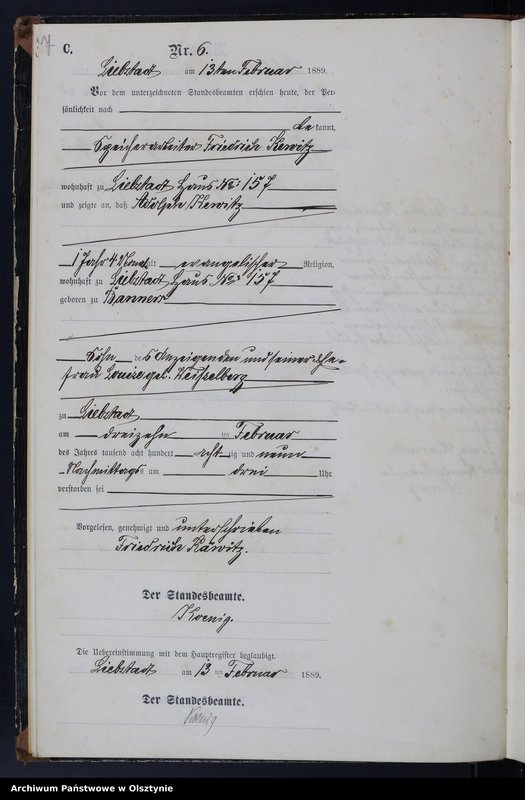 37
C. Nr. 6.
Liebstadt am 13ten Februar 1889.
Vor dem unterzeichneten Standesbeamten erschien heute, der Per-
sönlichkeit nach
be kannt,
Speicherarbeiter Friedrich Kewitz
wohnhaft zu Liebstadt Haus No: 157
und zeigte an, daß Adolph Kewitz
1 Jahr 4 Monat alt evangelischer Religion,
wohnhaft zu Liebstadt Haus No: 157
geboren zu Banners
Sohn des Anzeigenden und seiner Ehe-
frau Louise geb. Weisselberg
zu Liebstadt
am dreizehn ten Februar
des Jahres tausend acht hundert acht zig und neun
Nachmittags um drei Uhr
verstorben sei
Vorgelesen, genehmigt und unterschrieben
Friedrich Käwitz.
Der Standesbeamte.
Koenig.
Die Uebereinstimmung mit dem Hauptregister beglaubigt.
Liebstadt am 13 ten Februar 1889.
Der Standesbeamte.
Koenig
Archiwum Państwowe w Olsztynie